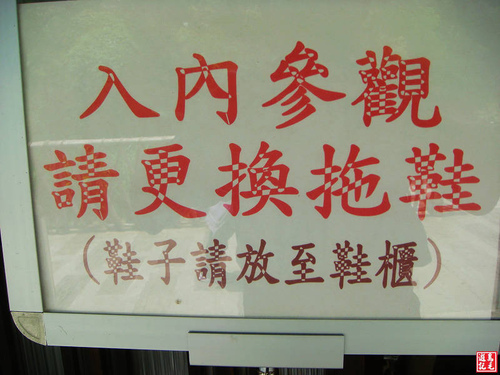 入內參觀
請更換拖鞋
（鞋子請放至鞋櫃）